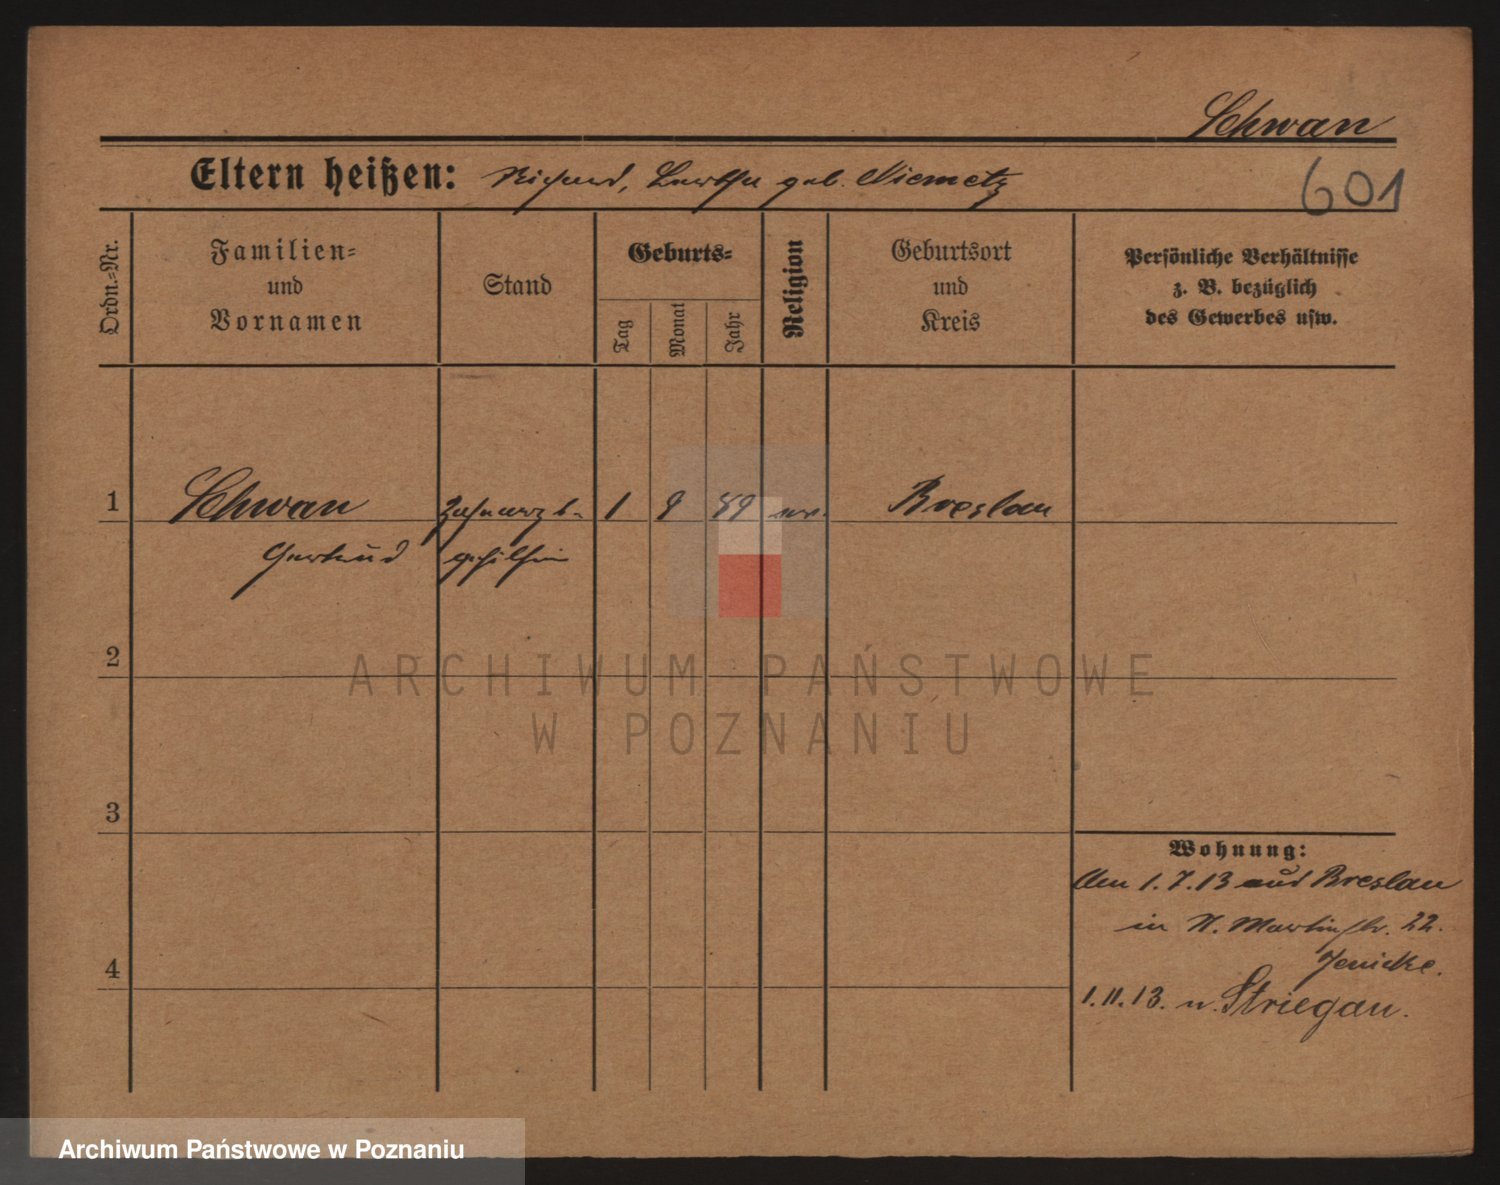 Schwan
Eltern heißen: Richard, Bertha geb. Niemetz
601
Ordn.=Nr.
Familien=
und
Vornamen
Stand
Geburts=
Tag
Monat
Jahr
Religion
Geburtsort
und
Kreis
Persönliche Verhältnisse
z. B. bezüglich
des Gewerbes usw.
1
Schwan
Gertrud
Zahnarzt-
gehilfin
1 9 89
ev.
Breslau
2
3
4
Wohnung:
Am 1.7.13 aus Breslau
in St. Martinstr. 22.
Jenicke.
1.11.13. n. Striegau.
ARCHIWUM PAŃSTWOWE
W POZNANIU
Archiwum Państwowe w Poznaniu